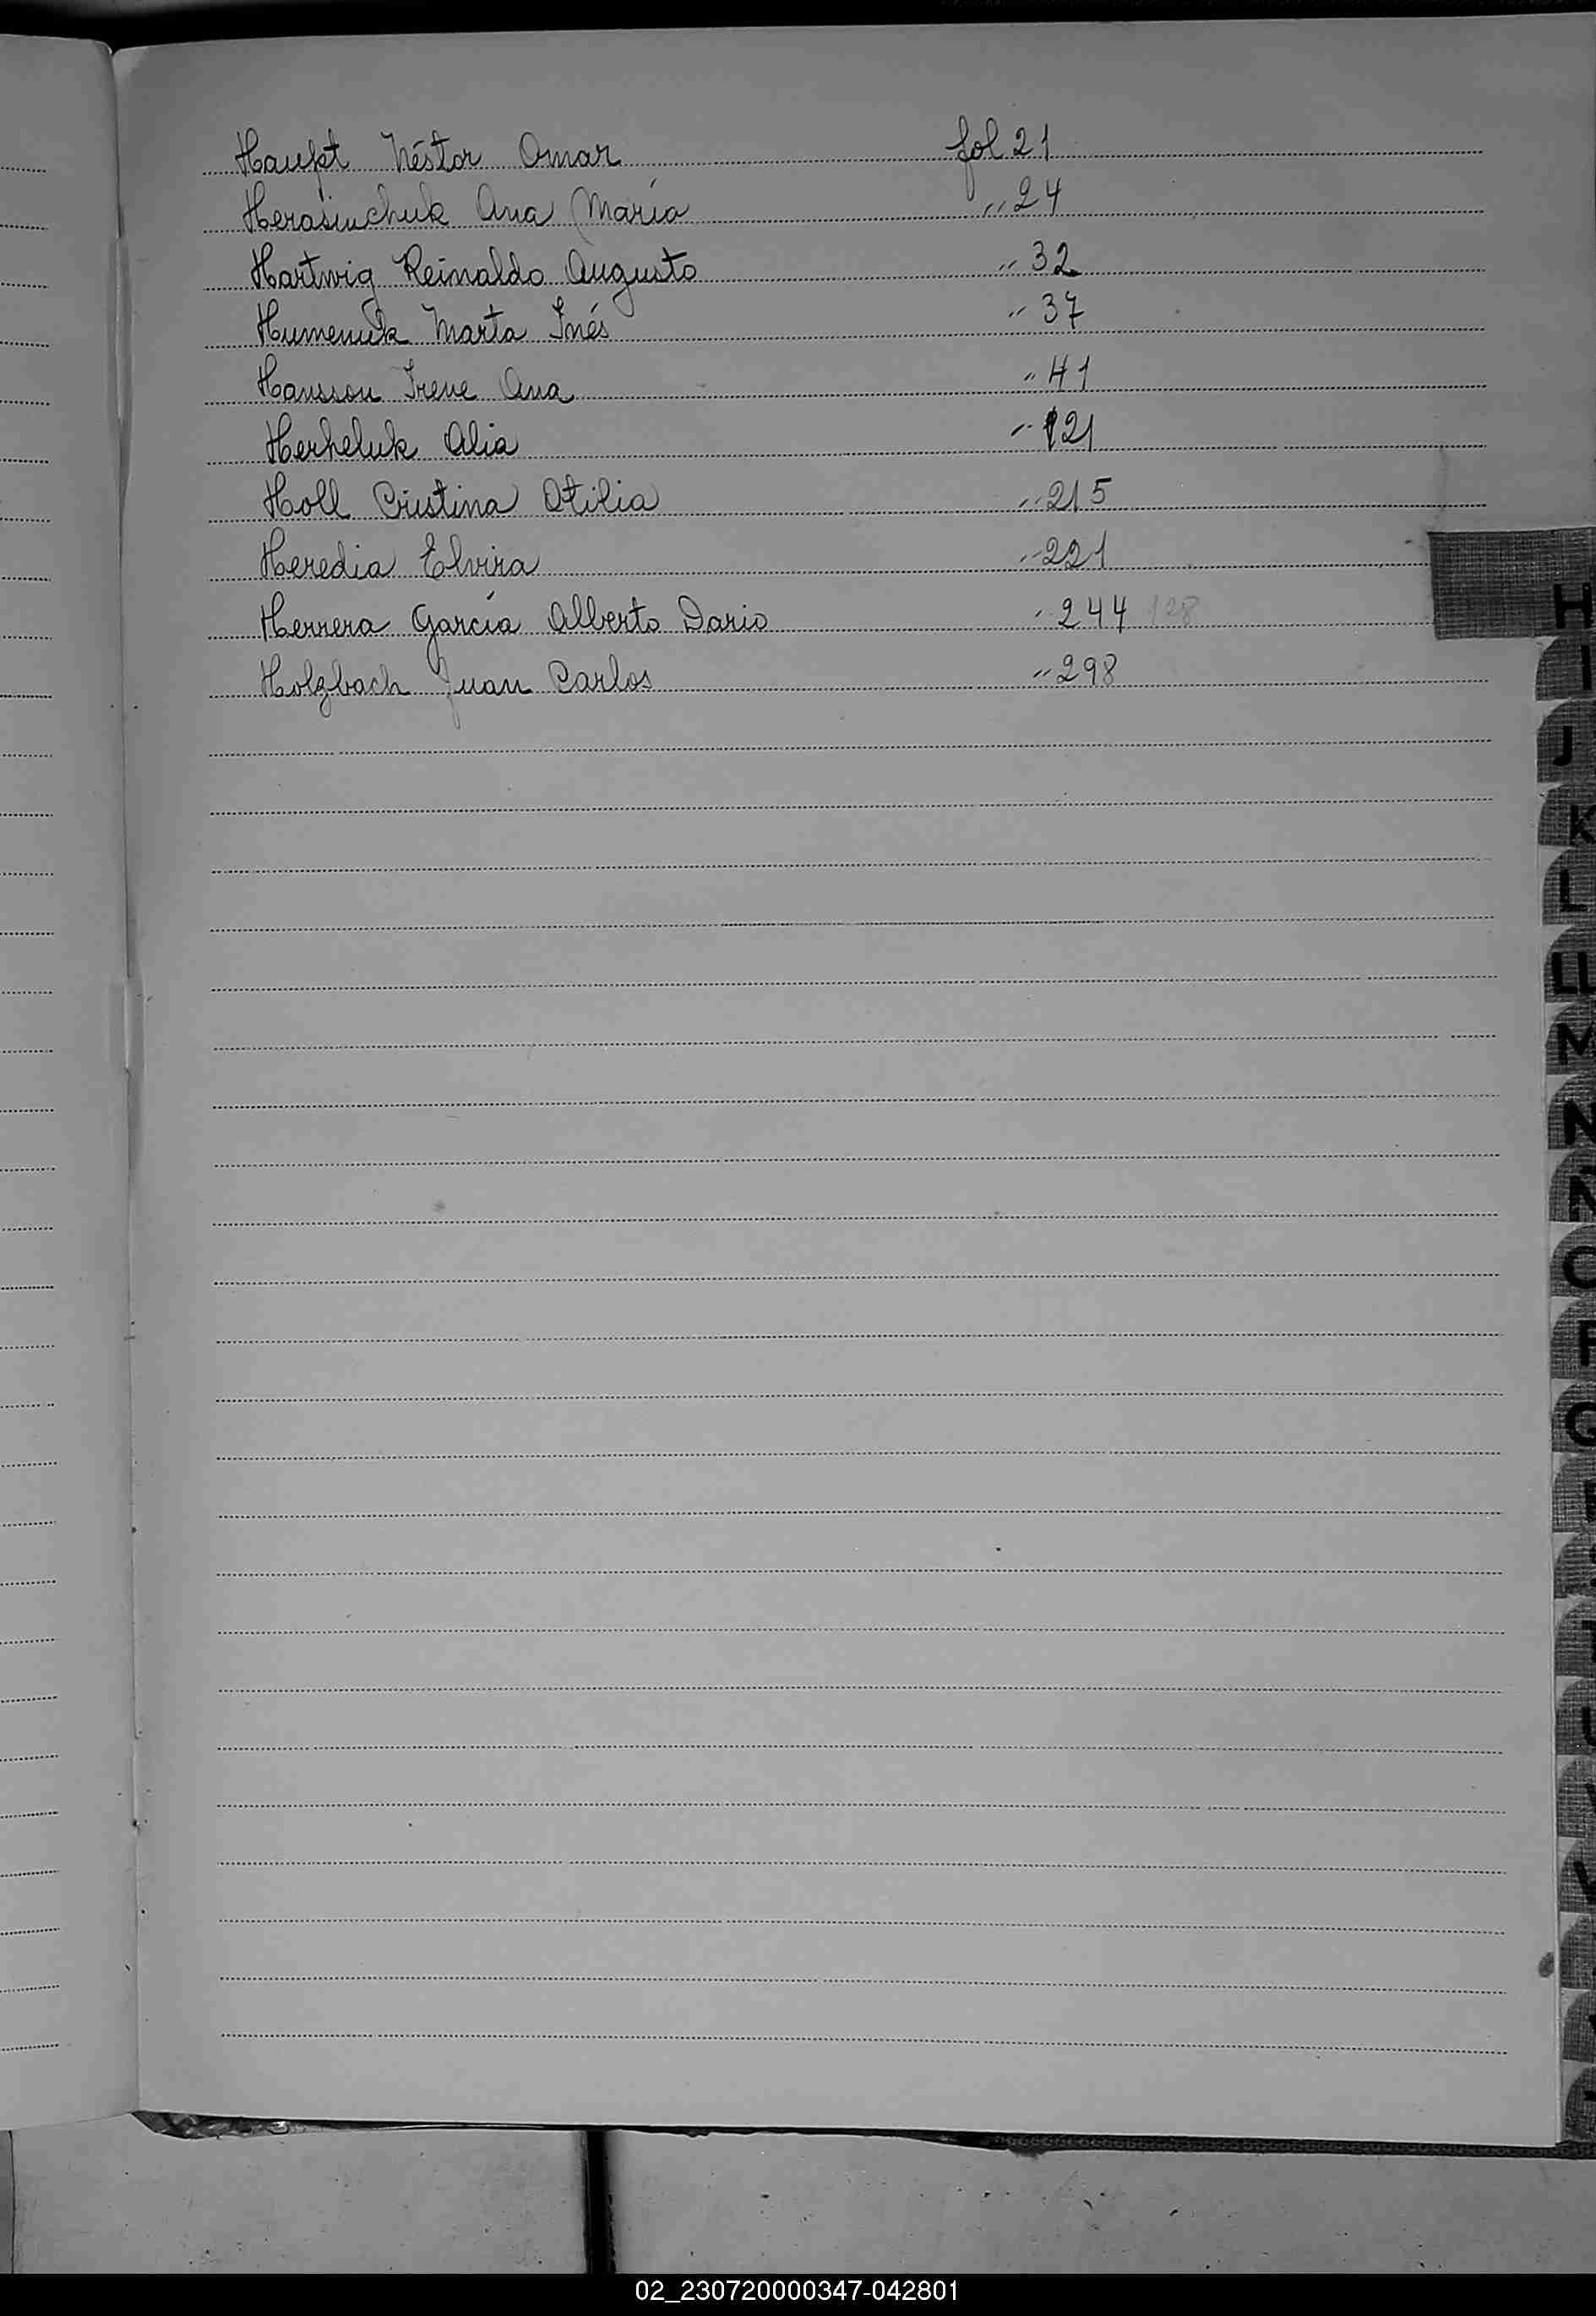 Haupt Néstor Omar fol 21
Herasimchuk Ana María " 24
Hartwig Reinaldo Augusto " 32
Humeniuk Marta Inés " 37
Hansson Irene Ana " 41
Herheluk Alia " 121
Holl Cristina Otilia " 215
Heredia Elvira " 221
Herrera García Alberto Dario " 244 128
Holzbach Juan Carlos " 298
H
I
J
K
L
LL
M
N
Ñ
O
P
Q
U
02_230720000347-042801